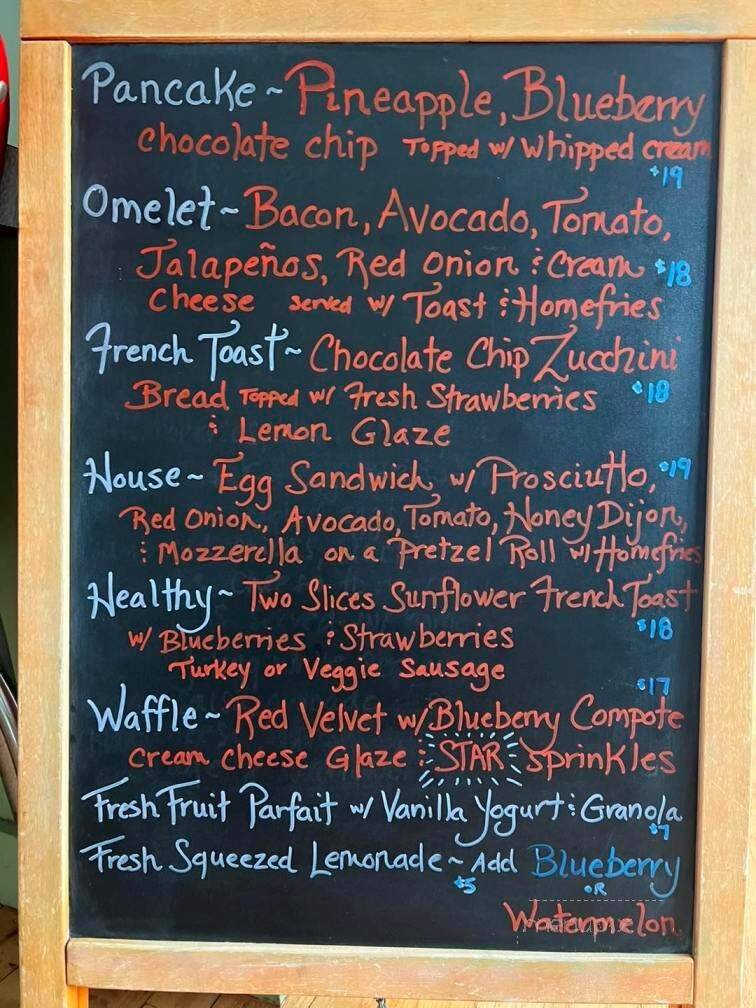 Pancake ~ Pineapple, Blueberry
chocolate chip Topped w/ Whipped cream
$19
Omelet ~ Bacon, Avocado, Tomato,
Jalapeños, Red Onion & Cream $18
Cheese served w/ Toast & Homefries
French Toast ~ Chocolate Chip Zucchini
Bread Topped w/ Fresh Strawberries $18
& Lemon Glaze
House ~ Egg Sandwich w/ Prosciutto, $19
Red Onion, Avocado, Tomato, Honey Dijon,
& Mozzerella on a Pretzel Roll w/ Homefries
Healthy ~ Two Slices Sunflower French Toast
w/ Blueberries & Strawberries $18
Turkey or Veggie Sausage
$17
Waffle ~ Red Velvet w/ Blueberry Compote
Cream Cheese Glaze & STAR Sprinkles
Fresh Fruit Parfait w/ Vanilla Yogurt & Granola
$7
Fresh Squeezed Lemonade ~ Add Blueberry
$5 OR
Watermelon